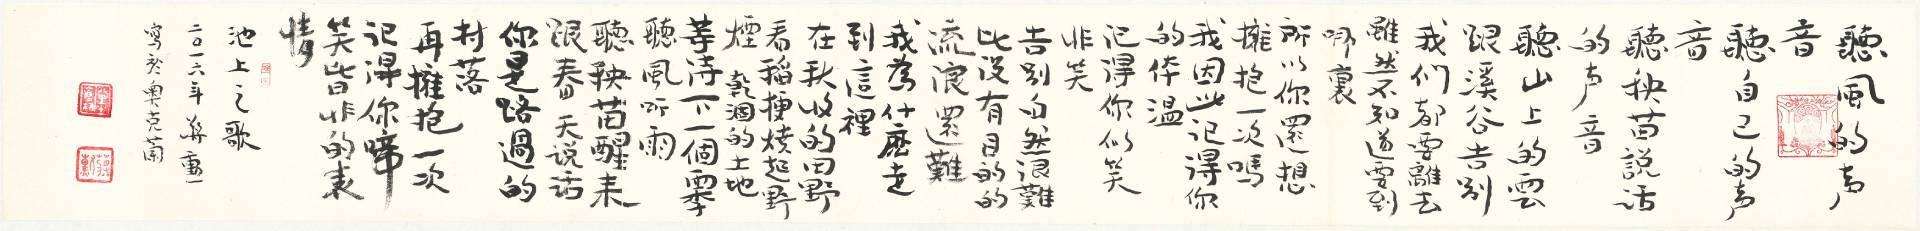 聽風的声
音
聽自己的声
音
聽秧苗說話
的声音
聽山上的雲
跟溪谷告别
我们都要離去
雖然不知道要到
哪裏
所以你還想
擁抱一次嗎
我因此记得你
的体温
记得你似笑
非笑
告别自然很難
比没有目的的
流浪還難
我為什麽走
到這裡
在秋收的田野
看稻梗燒起野
煙 乾涸的土地
等待下一個雨季
聽風听雨
聽秧苗醒来
跟春天说话
你是路過的
村落
再擁抱一次
记得你啼
笑皆非的表
情
池上之歌
二〇一六年 蔣勳
寫於奥克蘭